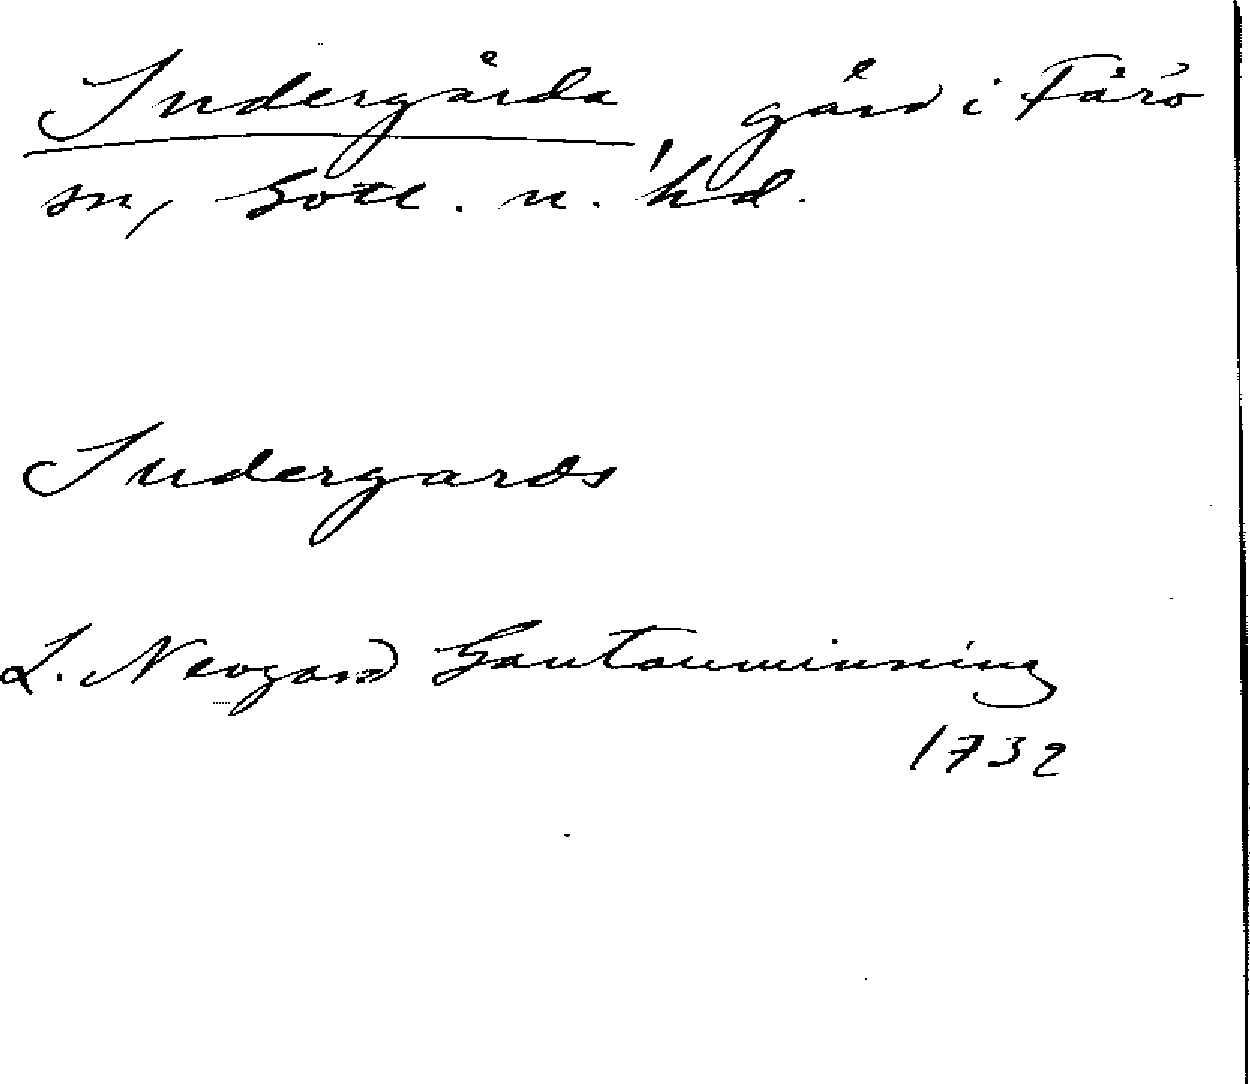 Indergårda, gård i Fårö
sn, Gotl. n. hd.
Indergards
L. Neogard Gautauminning
1732